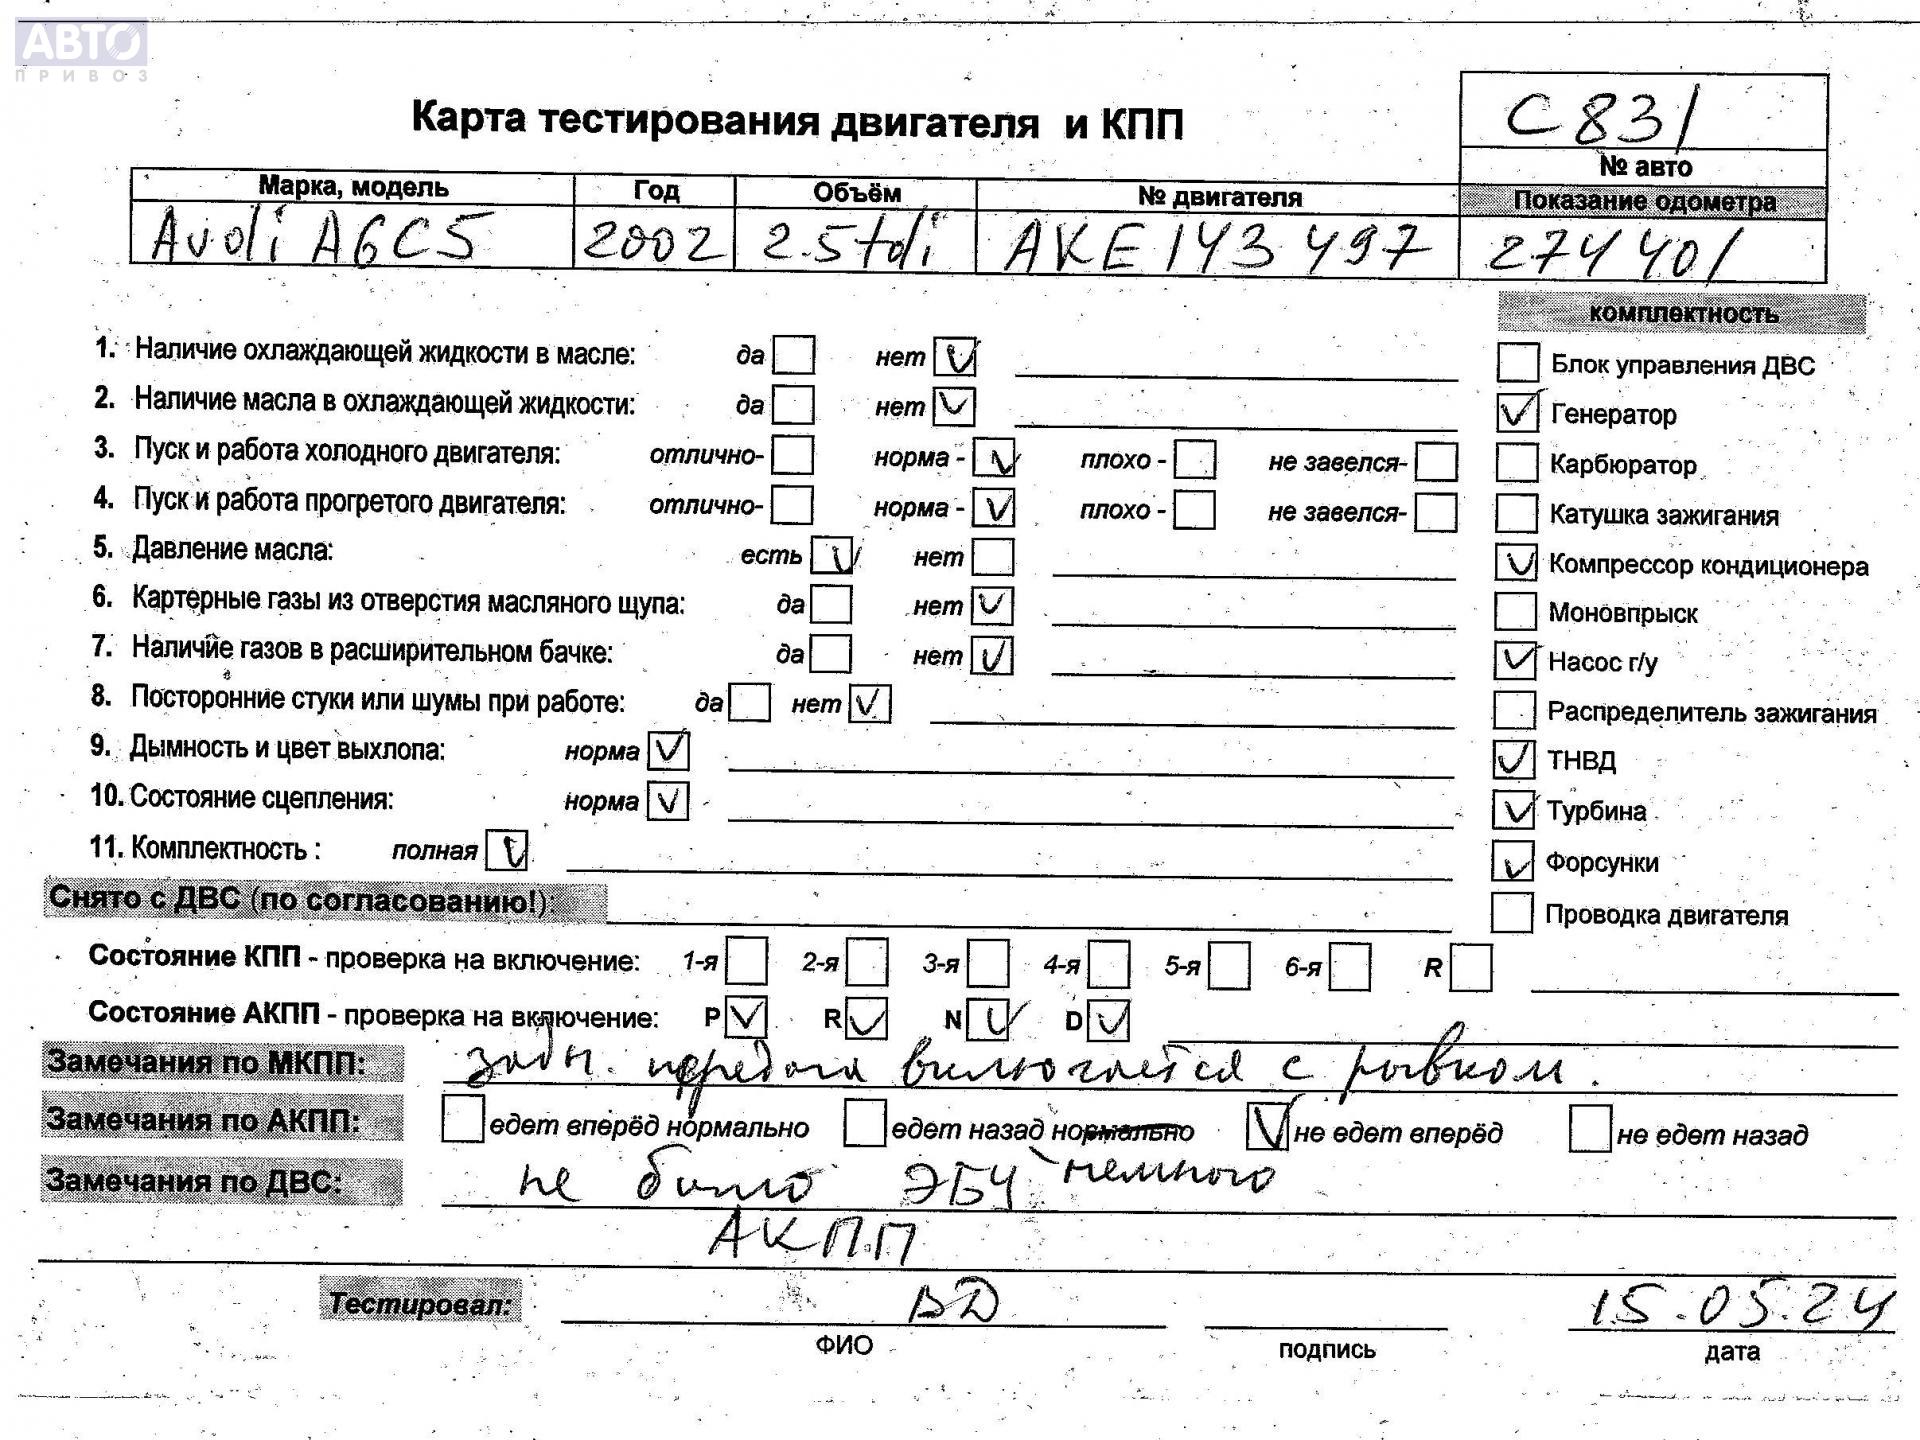 АВТО
ПРИВОЗ
Карта тестирования двигателя и КПП
C831
№ авто
Марка, модель Год Объём № двигателя Показание одометра
Audi A6C5 2002 2.5tdi AKE 143 497 274 401
комплектность
1. Наличие охлаждающей жидкости в масле: да нет V
Блок управления ДВС
2. Наличие масла в охлаждающей жидкости: да нет V
V Генератор
3. Пуск и работа холодного двигателя: отлично- норма - V плохо - не завелся-
Карбюратор
4. Пуск и работа прогретого двигателя: отлично- норма - V плохо - не завелся-
Катушка зажигания
5. Давление масла: есть V нет
V Компрессор кондиционера
6. Картерные газы из отверстия масляного щупа: да нет V
Моновпрыск
7. Наличие газов в расширительном бачке: да нет V
V Насос г/у
8. Посторонние стуки или шумы при работе: да нет V
Распределитель зажигания
9. Дымность и цвет выхлопа: норма V
V ТНВД
10. Состояние сцепления: норма V
V Турбина
11. Комплектность : полная V
V Форсунки
Снято с ДВС (по согласованию!):
Проводка двигателя
Состояние КПП - проверка на включение: 1-я 2-я 3-я 4-я 5-я 6-я R
Состояние АКПП - проверка на включение: P V R V N V D V
Замечания по МКПП: задн. передача включается с рывком.
Замечания по АКПП: едет вперёд нормально едет назад нормально V не едет вперёд не едет назад
Замечания по ДВС: не было ЭБУ немного
АКПП
Тестировал: ВД 15.05.24
ФИО подпись дата